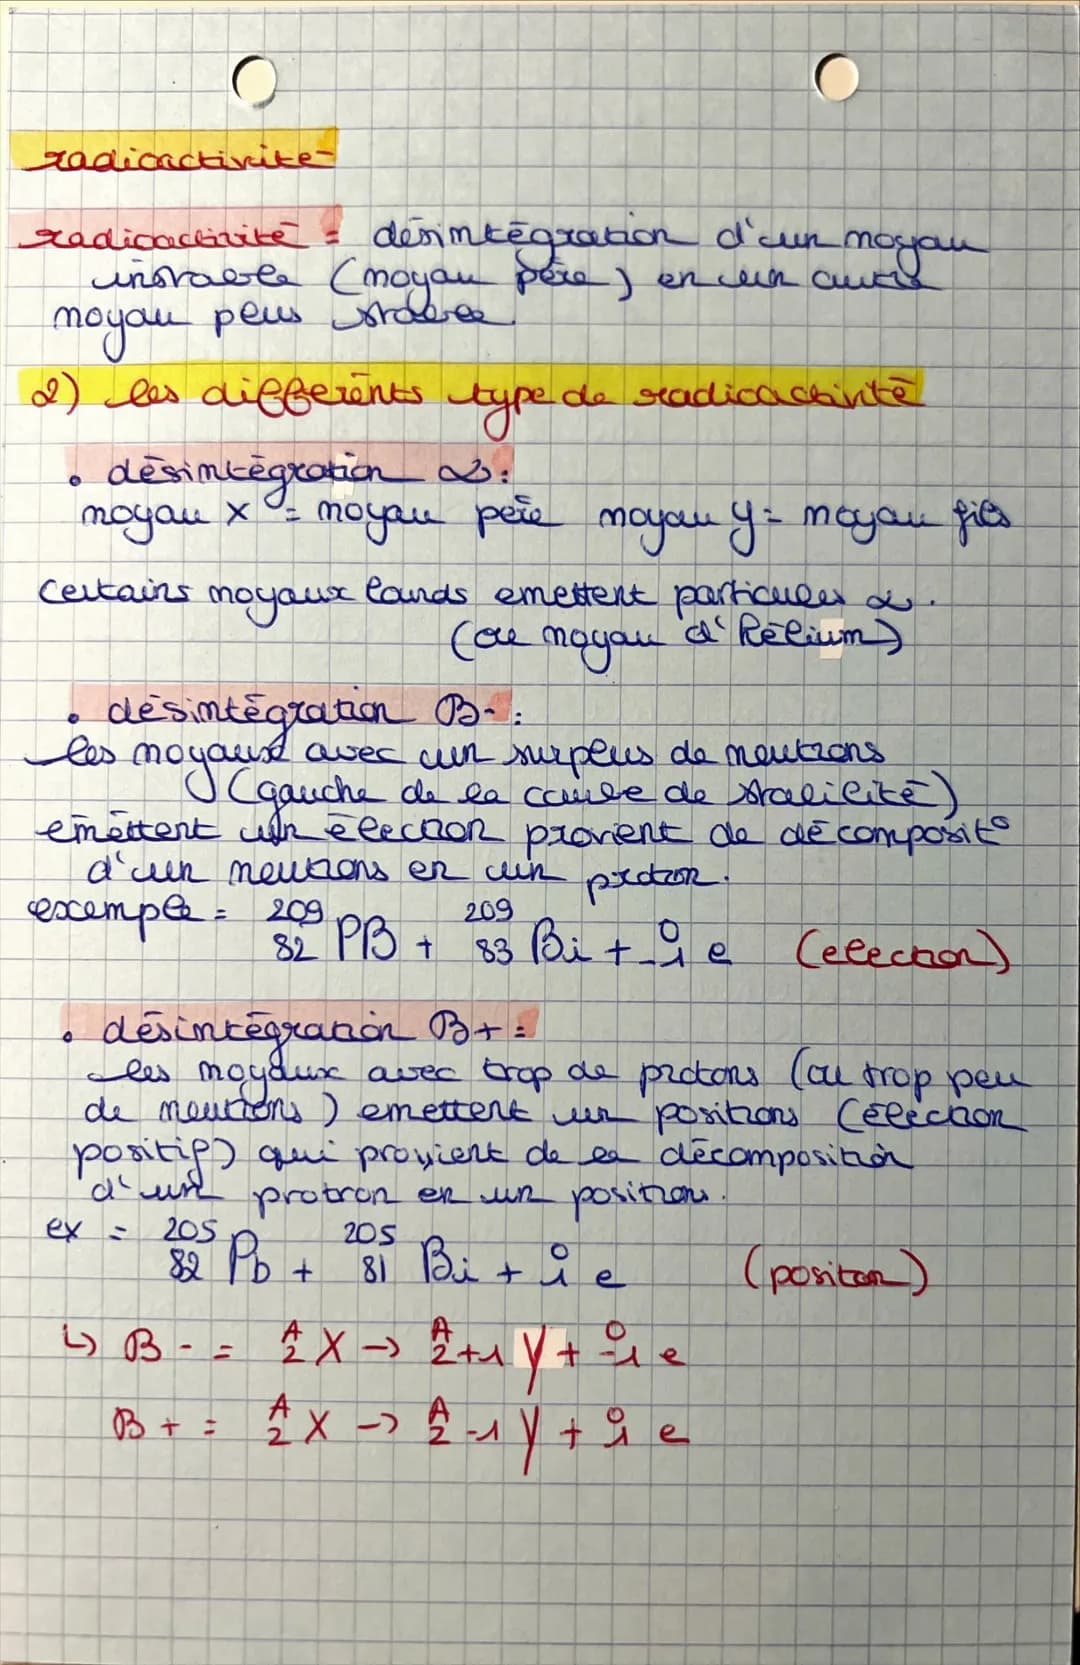 radioactivité
radioactivité = désintégration d'un noyau
instable (noyau père) en un autre
noyau plus stable.
2) les différents type de radioactivité
• désintégration α :
noyau X = noyau père noyau y = noyau fils
certains noyaux lourds emettent particules α.
(ou noyau d'hélium)
• désintégration B- :
les noyaux avec un surplus de neutrons
(gauche de la courbe de stabilité)
emettent un électron provient de décomposit°
d'un neutrons en un proton.
exemple = 209 82 PB + 209 83 Bi + 0 -1 e (electron)
• désintégration B+ =
les noyaux avec trop de protons (ou trop peu
de neutrons) emettent un positions (électron
positif) qui provient de la décomposition
d'un protron en un positions.
ex = 205 82 Pb + 205 81 Bi + 0 1 e (positon)
↳ B - = A 2 X → A 2+1 Y + 0 -1 e
B + = A 2 X → A 2-1 Y + 0 1 e